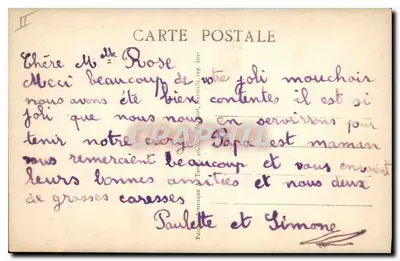 II
CARTE POSTALE
Chère Mlle Rose
Meci beaucoup de votre joli mouchoir
nous avons été bien contentes il est si
joli que nous nous en servirons pour
tenir notre cierge Papa est maman
vous remercient beaucoup et vous envoient
leurs bonnes amitiés et nous deux
de grosses caresses
Paulette et Simone